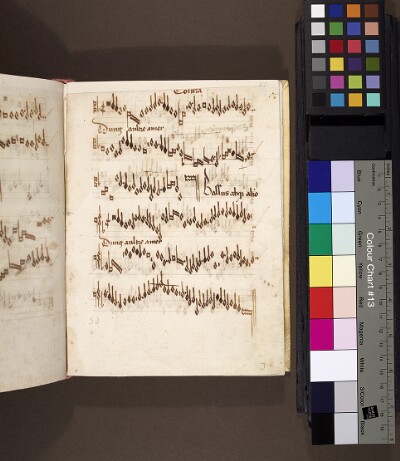 Contra
Dung aultre amer
Ballus absqz alio
Dung aultre amer
Colour Chart #13
Blue
Cyan
Green
Yellow
Red
Magenta
White
3/Color
Black